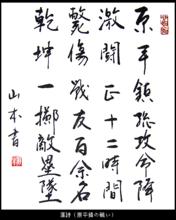 原平鎮強攻命降
激闘正十二時間
斃傷戰友百余名
乾坤一擲敵塁墜
山本書
漢詩(原平鎮の戦い)